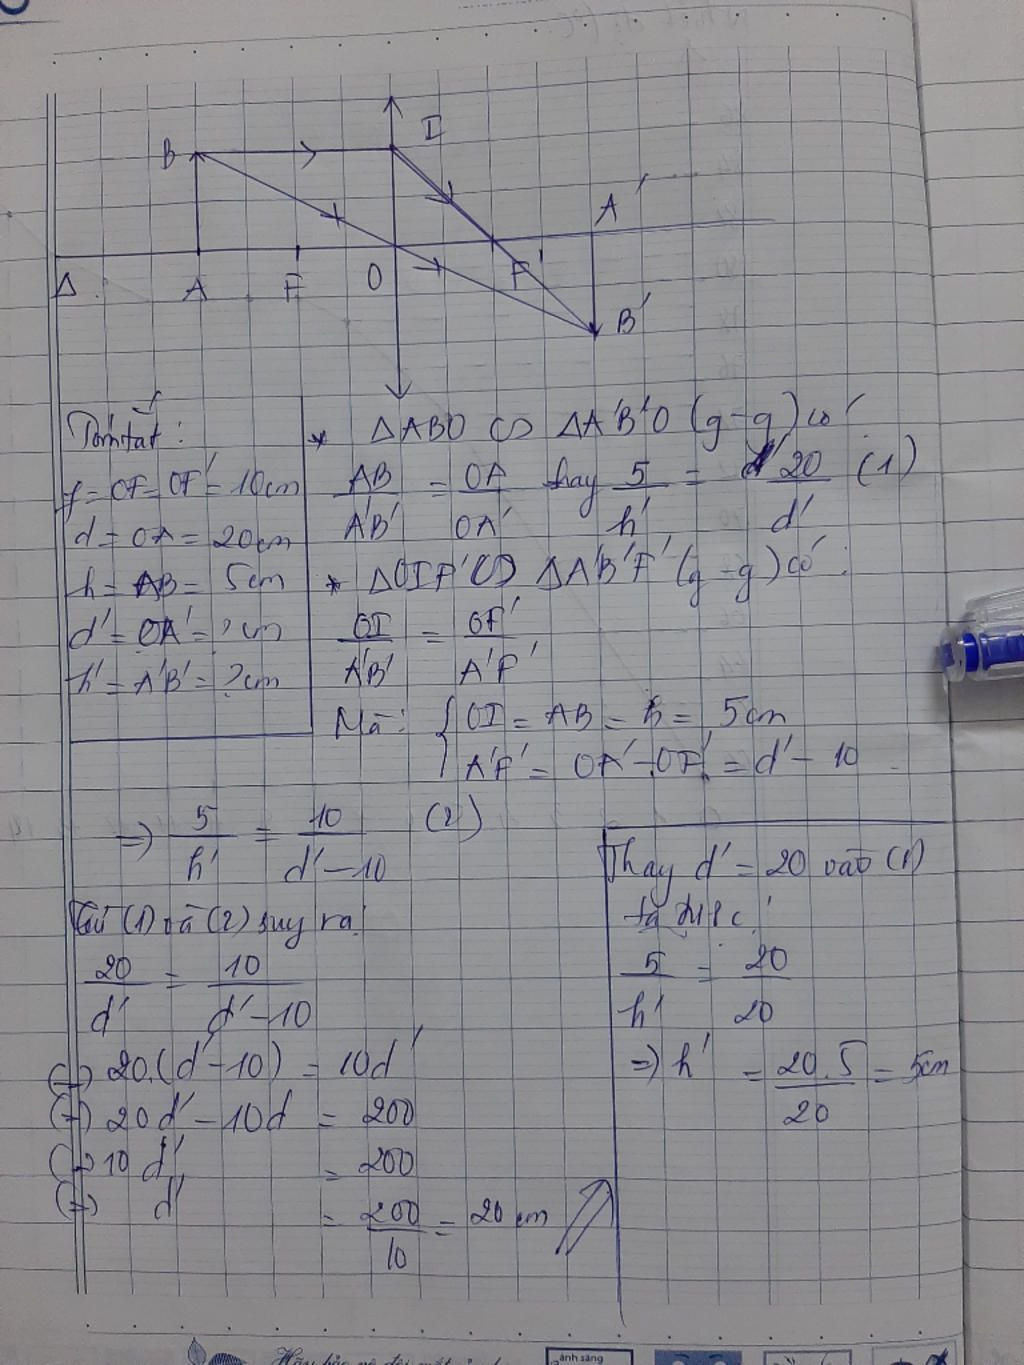 B
I
A'
Δ
A
F
O
F'
B'
Tóm tắt:
f = OF = OF' = 10cm
d = OA = 20cm
h = AB = 5cm
d' = OA' = ? cm
h' = A'B' = ? cm
* ΔABO ∽ ΔA'B'O (g-g) có:
AB/A'B' = OA/OA' hay 5/h' = 20/d' (1)
* ΔOIF' ∽ ΔA'B'F' (g-g) có:
OI/A'B' = OF'/A'F'
Mà: { OI = AB = h = 5cm
A'F' = OA' - OF' = d' - 10
=> 5/h' = 10/(d' - 10) (2)
Từ (1) và (2) suy ra:
20/d' = 10/(d' - 10)
(=) 20.(d' - 10) = 10d'
(=) 20d' - 10d = 200
(=) 10d' = 200
(=) d' = 200/10 = 20 cm
Thay d' = 20 vào (1)
ta được:
5/h' = 20/20
=> h' = 20.5/20 = 5cm
ánh sáng